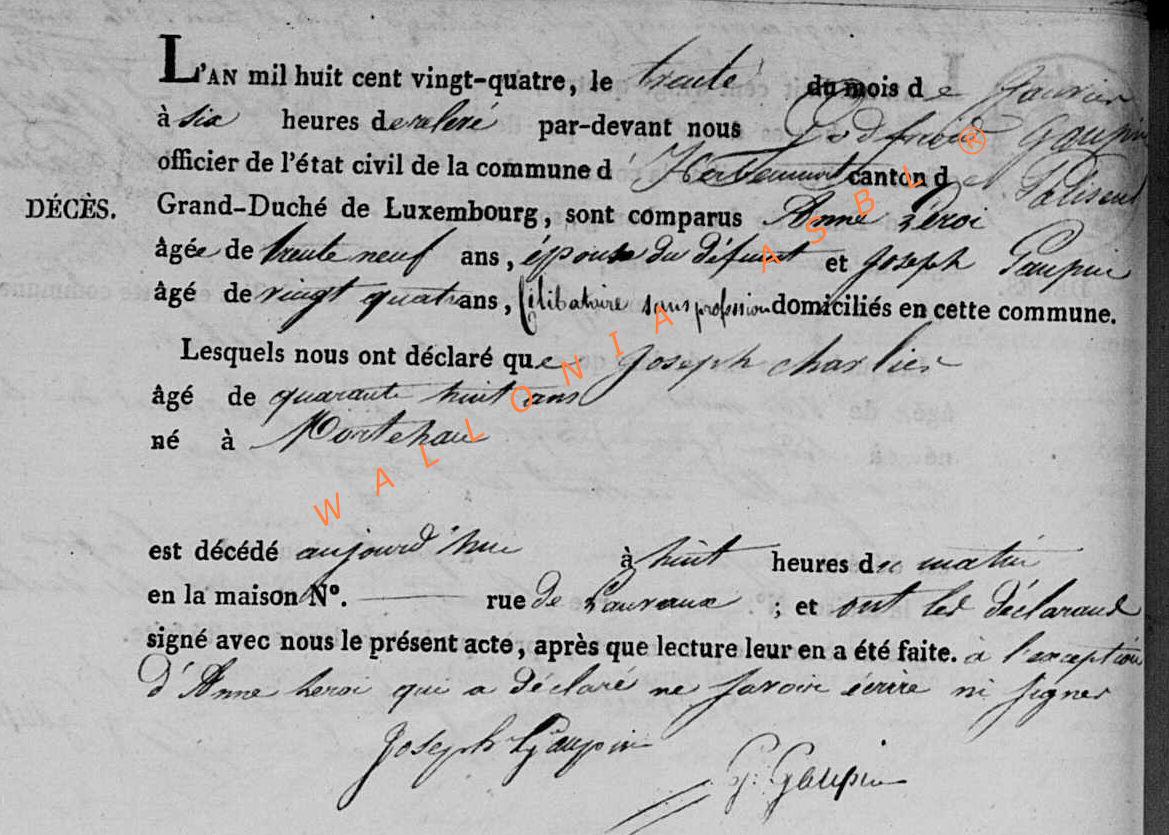 L'AN mil huit cent vingt-quatre, le trente du mois de Janvier
à six heures de relevé par-devant nous Godfried Gaupin
officier de l'état civil de la commune d' Herbeumont canton de Paliseul
DÉCÈS. Grand-Duché de Luxembourg, sont comparus Anne Leroi
âgée de trente neuf ans, épouse du défunt et Joseph Gaupin
âgé de vingt quatre ans, Célibataire sans profession domiciliés en cette commune.
Lesquels nous ont déclaré que Joseph Charlier
âgé de quarante huit ans
né à Mortehan
est décédé aujourd'hui à huit heures du matin
en la maison N°. rue de ; et ont les déclarans
signé avec nous le présent acte, après que lecture leur en a été faite. à l'exception
d'Anne Leroi qui a déclaré ne savoir écrire ni signer
Joseph Gaupin
G. Gaupin
WALLONIA ASBL ®